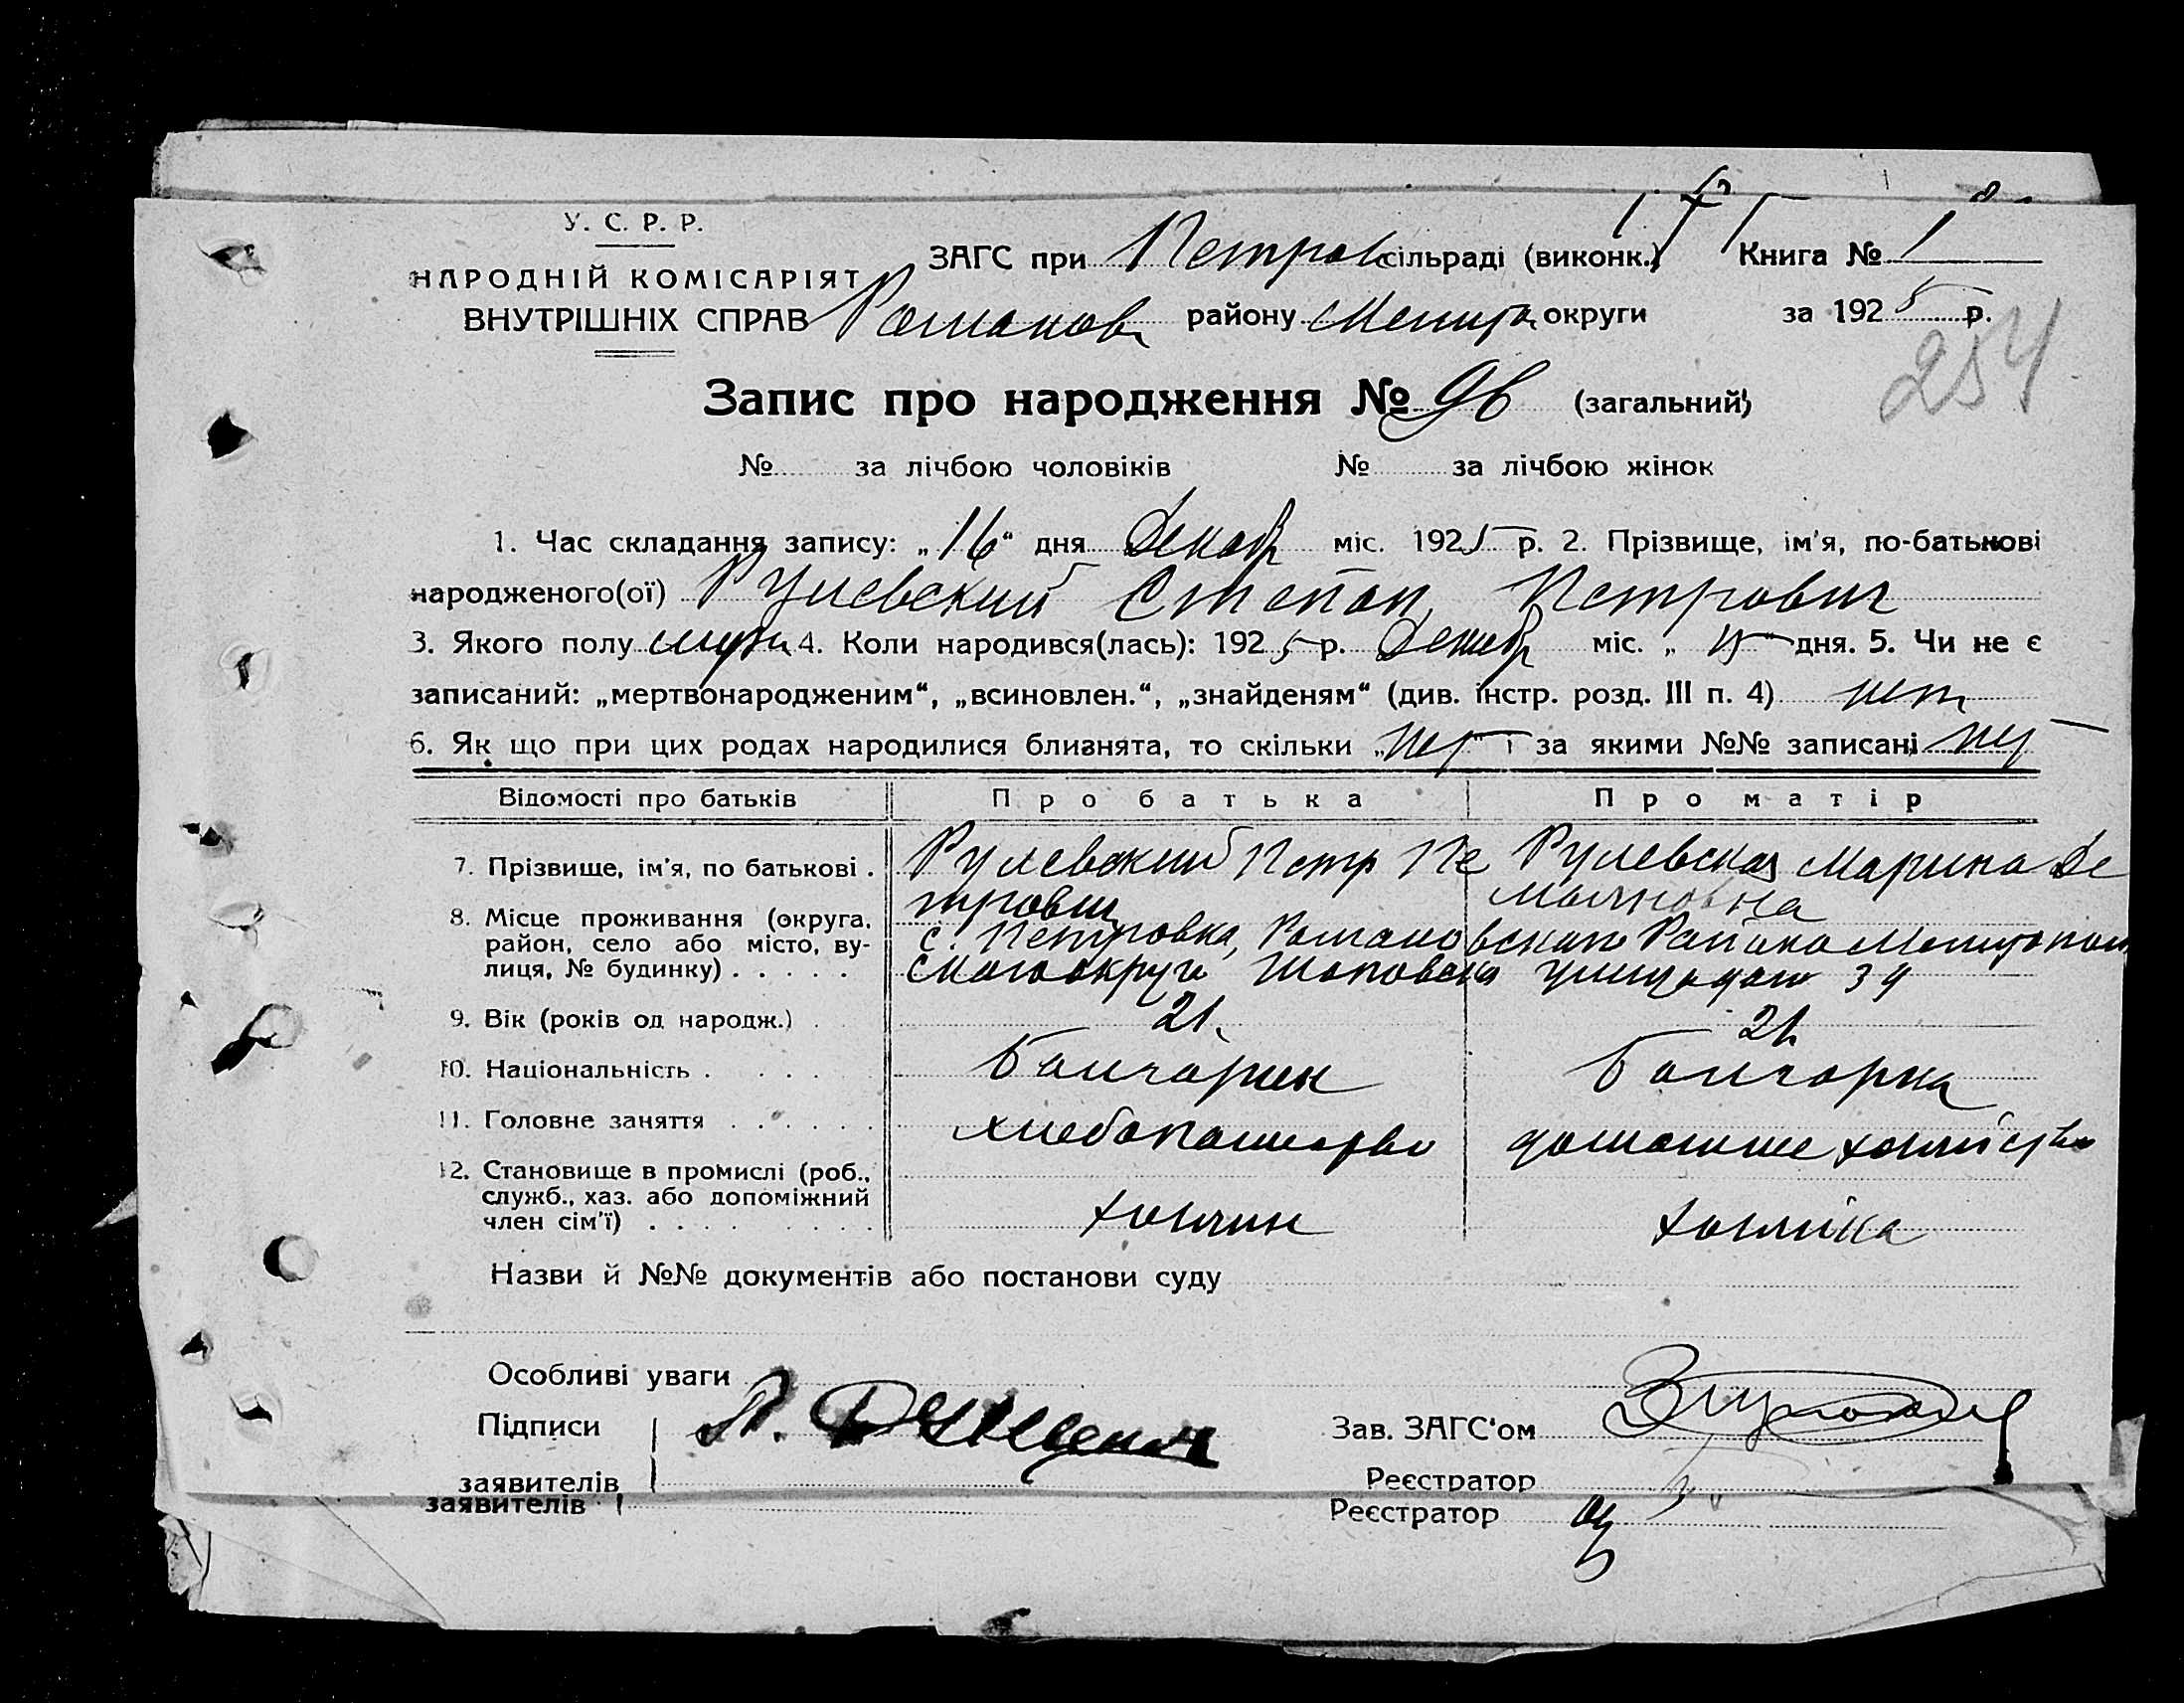 У. С. Р. Р.
НАРОДНІЙ КОМІСАРІЯТ
ВНУТРІШНІХ СПРАВ
ЗАГС при Петров сільраді (виконк.) Книга № 1
Романов району Мелит округи за 1925 р.
254
Запис про народження № 96 (загальний)
№ за лічбою чоловіків № за лічбою жінок
1. Час складання запису: „16“ дня Декабр міс. 1925 р. 2. Прізвище, ім'я, по-батькові
народженого(ої) Рулевский Степан Петрович
3. Якого полу 4. Коли народився(лась): 1925 р. Декабр міс. „15“ дня. 5. Чи не є
записаний: „мертвонародженим“, „всиновлен.“, „знайденям“ (див. інстр. розд. III п. 4) нет
6. Як що при цих родах народилися близнята, то скільки „нет“ і за якими №№ записані нет
Відомості про батьків Про батька Про матір
7. Прізвище, ім'я, по батькові . Рулевский Петр Пе Рулевская Марина Де
трович мьяновна
8. Місце проживання (округа, район, село або місто, вулиця, № будинку) . . . . . с. Петровка, Романовского Района Мелитополь
ского округа улица дом 34
9. Вік (років од народж.) . 21. 21.
10. Національність . . . . Болгарин Болгорка
11. Головне заняття . . . . . . хлебопашество домашнее хозяйство
12. Становище в промислі (роб., служб., хаз. або допоміжний член сім'ї) . . . . . . . . . хозяин хозяйка
Назви й №№ документів або постанови суду
Особливі уваги
Підписи
заявителів
Зав. ЗАГС'ом
Реєстратор
заявителів
Реєстратор